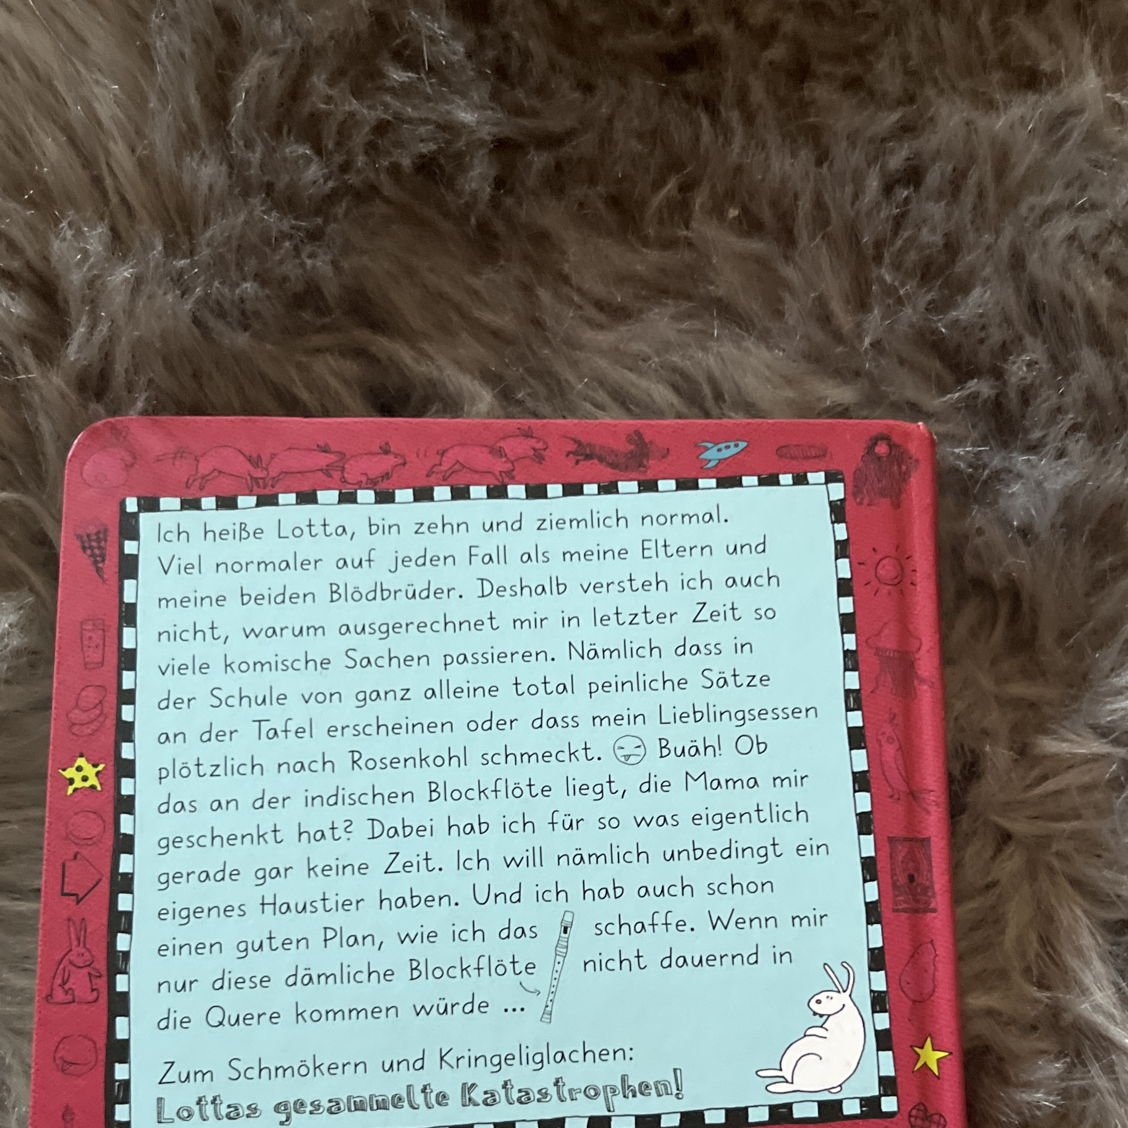 Ich heiße Lotta, bin zehn und ziemlich normal.
Viel normaler auf jeden Fall als meine Eltern und
meine beiden Blödbrüder. Deshalb versteh ich auch
nicht, warum ausgerechnet mir in letzter Zeit so
viele komische Sachen passieren. Nämlich dass in
der Schule von ganz alleine total peinliche Sätze
an der Tafel erscheinen oder dass mein Lieblingsessen
plötzlich nach Rosenkohl schmeckt. Buäh! Ob
das an der indischen Blockflöte liegt, die Mama mir
geschenkt hat? Dabei hab ich für so was eigentlich
gerade gar keine Zeit. Ich will nämlich unbedingt ein
eigenes Haustier haben. Und ich hab auch schon
einen guten Plan, wie ich das schaffe. Wenn mir
nur diese dämliche Blockflöte nicht dauernd in
die Quere kommen würde ...
Zum Schmökern und Kringeliglachen:
Lottas gesammelte Katastrophen!